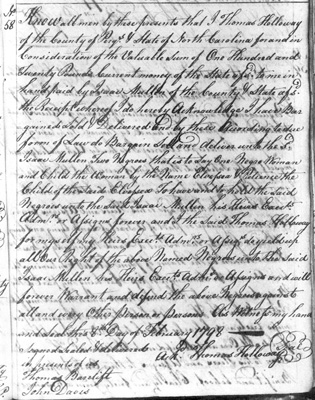 No
58
Know all men by these presents that I Thomas Holloway
of the County of Perqs & State of North Carolina for and in
Consideration of the Valuable Sum of One Hundred and
Seventy Pounds Current money of the State afsd to me in
hand paid by Isaac Mullen of the County & State afsd
the Receipt whereof I do hereby Acknowledge I have Bar
gained Sold & Delivered and by these according to due
form of Law do Bargain Sell and deliver unto the sd
Isaac Mullen Two Negroes that is to say One Negro Woman
and Child the Woman by the Name &
Child of the said To have and to hold the Said
Negroes unto the Said Isaac Mullen his Heirs Exectr
Admr or Assigns forever and I the Said Thomas Holloway
for myself my Heirs Exectr Admr or Assigs do yield up
all Our Right of the above Named Negroes unto the Said
Isaac Mullen his Heirs Exectr Admr or Assigns and will
forever Warrant and defend the above Negroes against
all and every Other Person or Persons As Witness my hand
and seal this 8th Day of February 1798
Signed Sealed & delivered
in presents of us Thomas Holloway
Thomas Barclift
John Davis